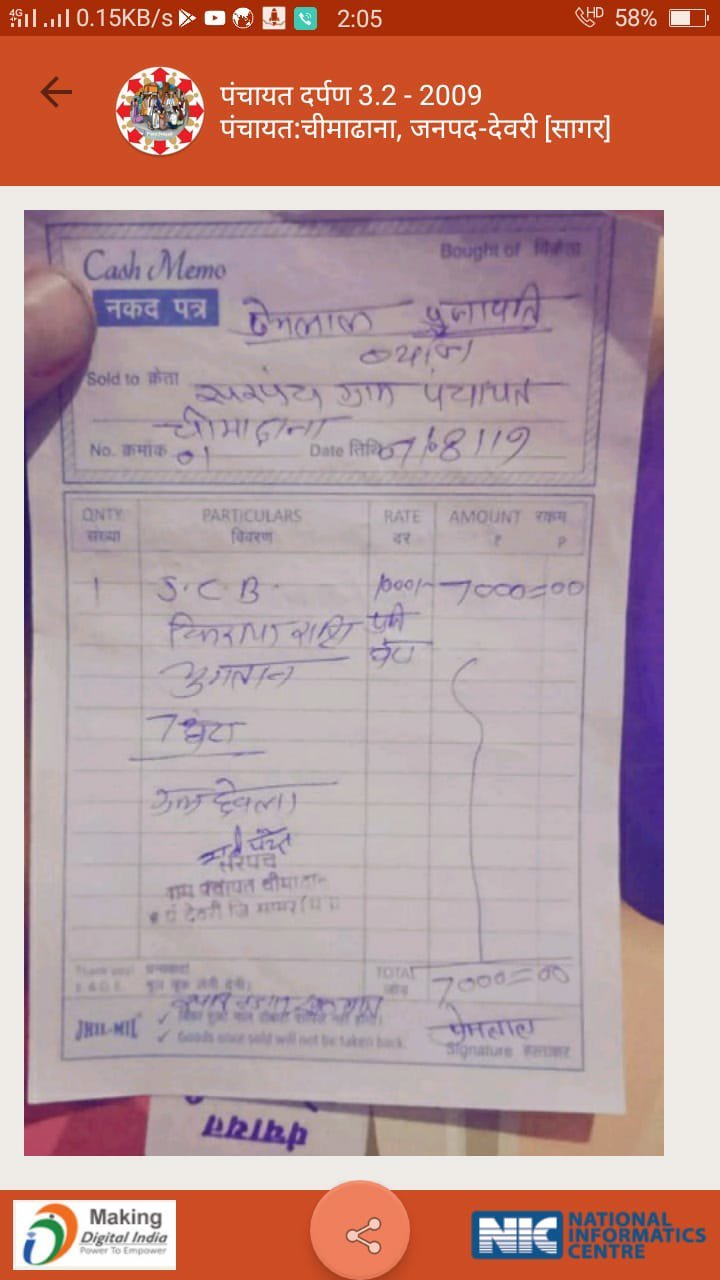 4G 0.15KB/s 2:05 HD 58%
पंचायत दर्पण 3.2 - 2009
पंचायत:चीमाढाना, जनपद-देवरी [सागर]
Cash Memo
Bought of विक्रेता
नकद पत्र
प्रेमलाल प्रजापति
Sold to क्रेता सरपंच ग्राम पंचायत
चीमाढाना
No. क्रमांक 01 Date तिथि
QNTY. PARTICULARS RATE AMOUNT रकम
संख्या विवरण दर ₹ P
1 J.C.B. 1000/- 7000=00
किराया राशि प्रति
भुगतान घंटा
7 घंटा
सरपंच
ग्राम पंचायत चीमाढाना
Thank you! धन्यवाद!
E.& O.E. भूल चूक लेनी देनी।
TOTAL
जोड़ 7000=00
JHIL-MIL
✓ Goods once sold will not be taken back.
प्रेमलाल
Signature हस्ताक्षर
पंचायत
Making
Digital India
Power To Empower
NIC NATIONAL
INFORMATICS
CENTRE